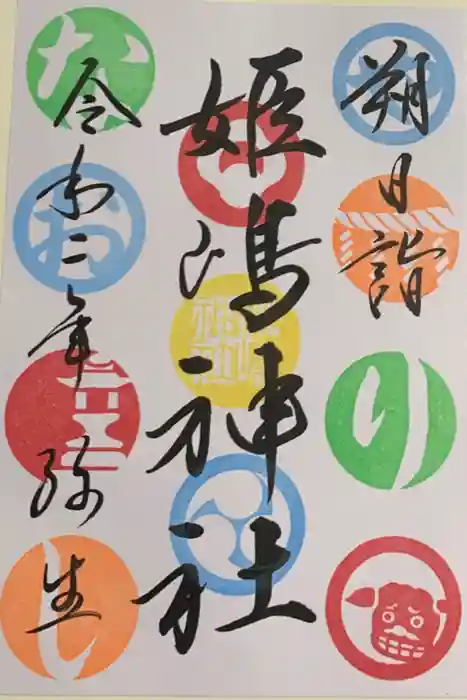 朔日詣
姫嶋神社
令和二年弥生
や
り
な
お
し